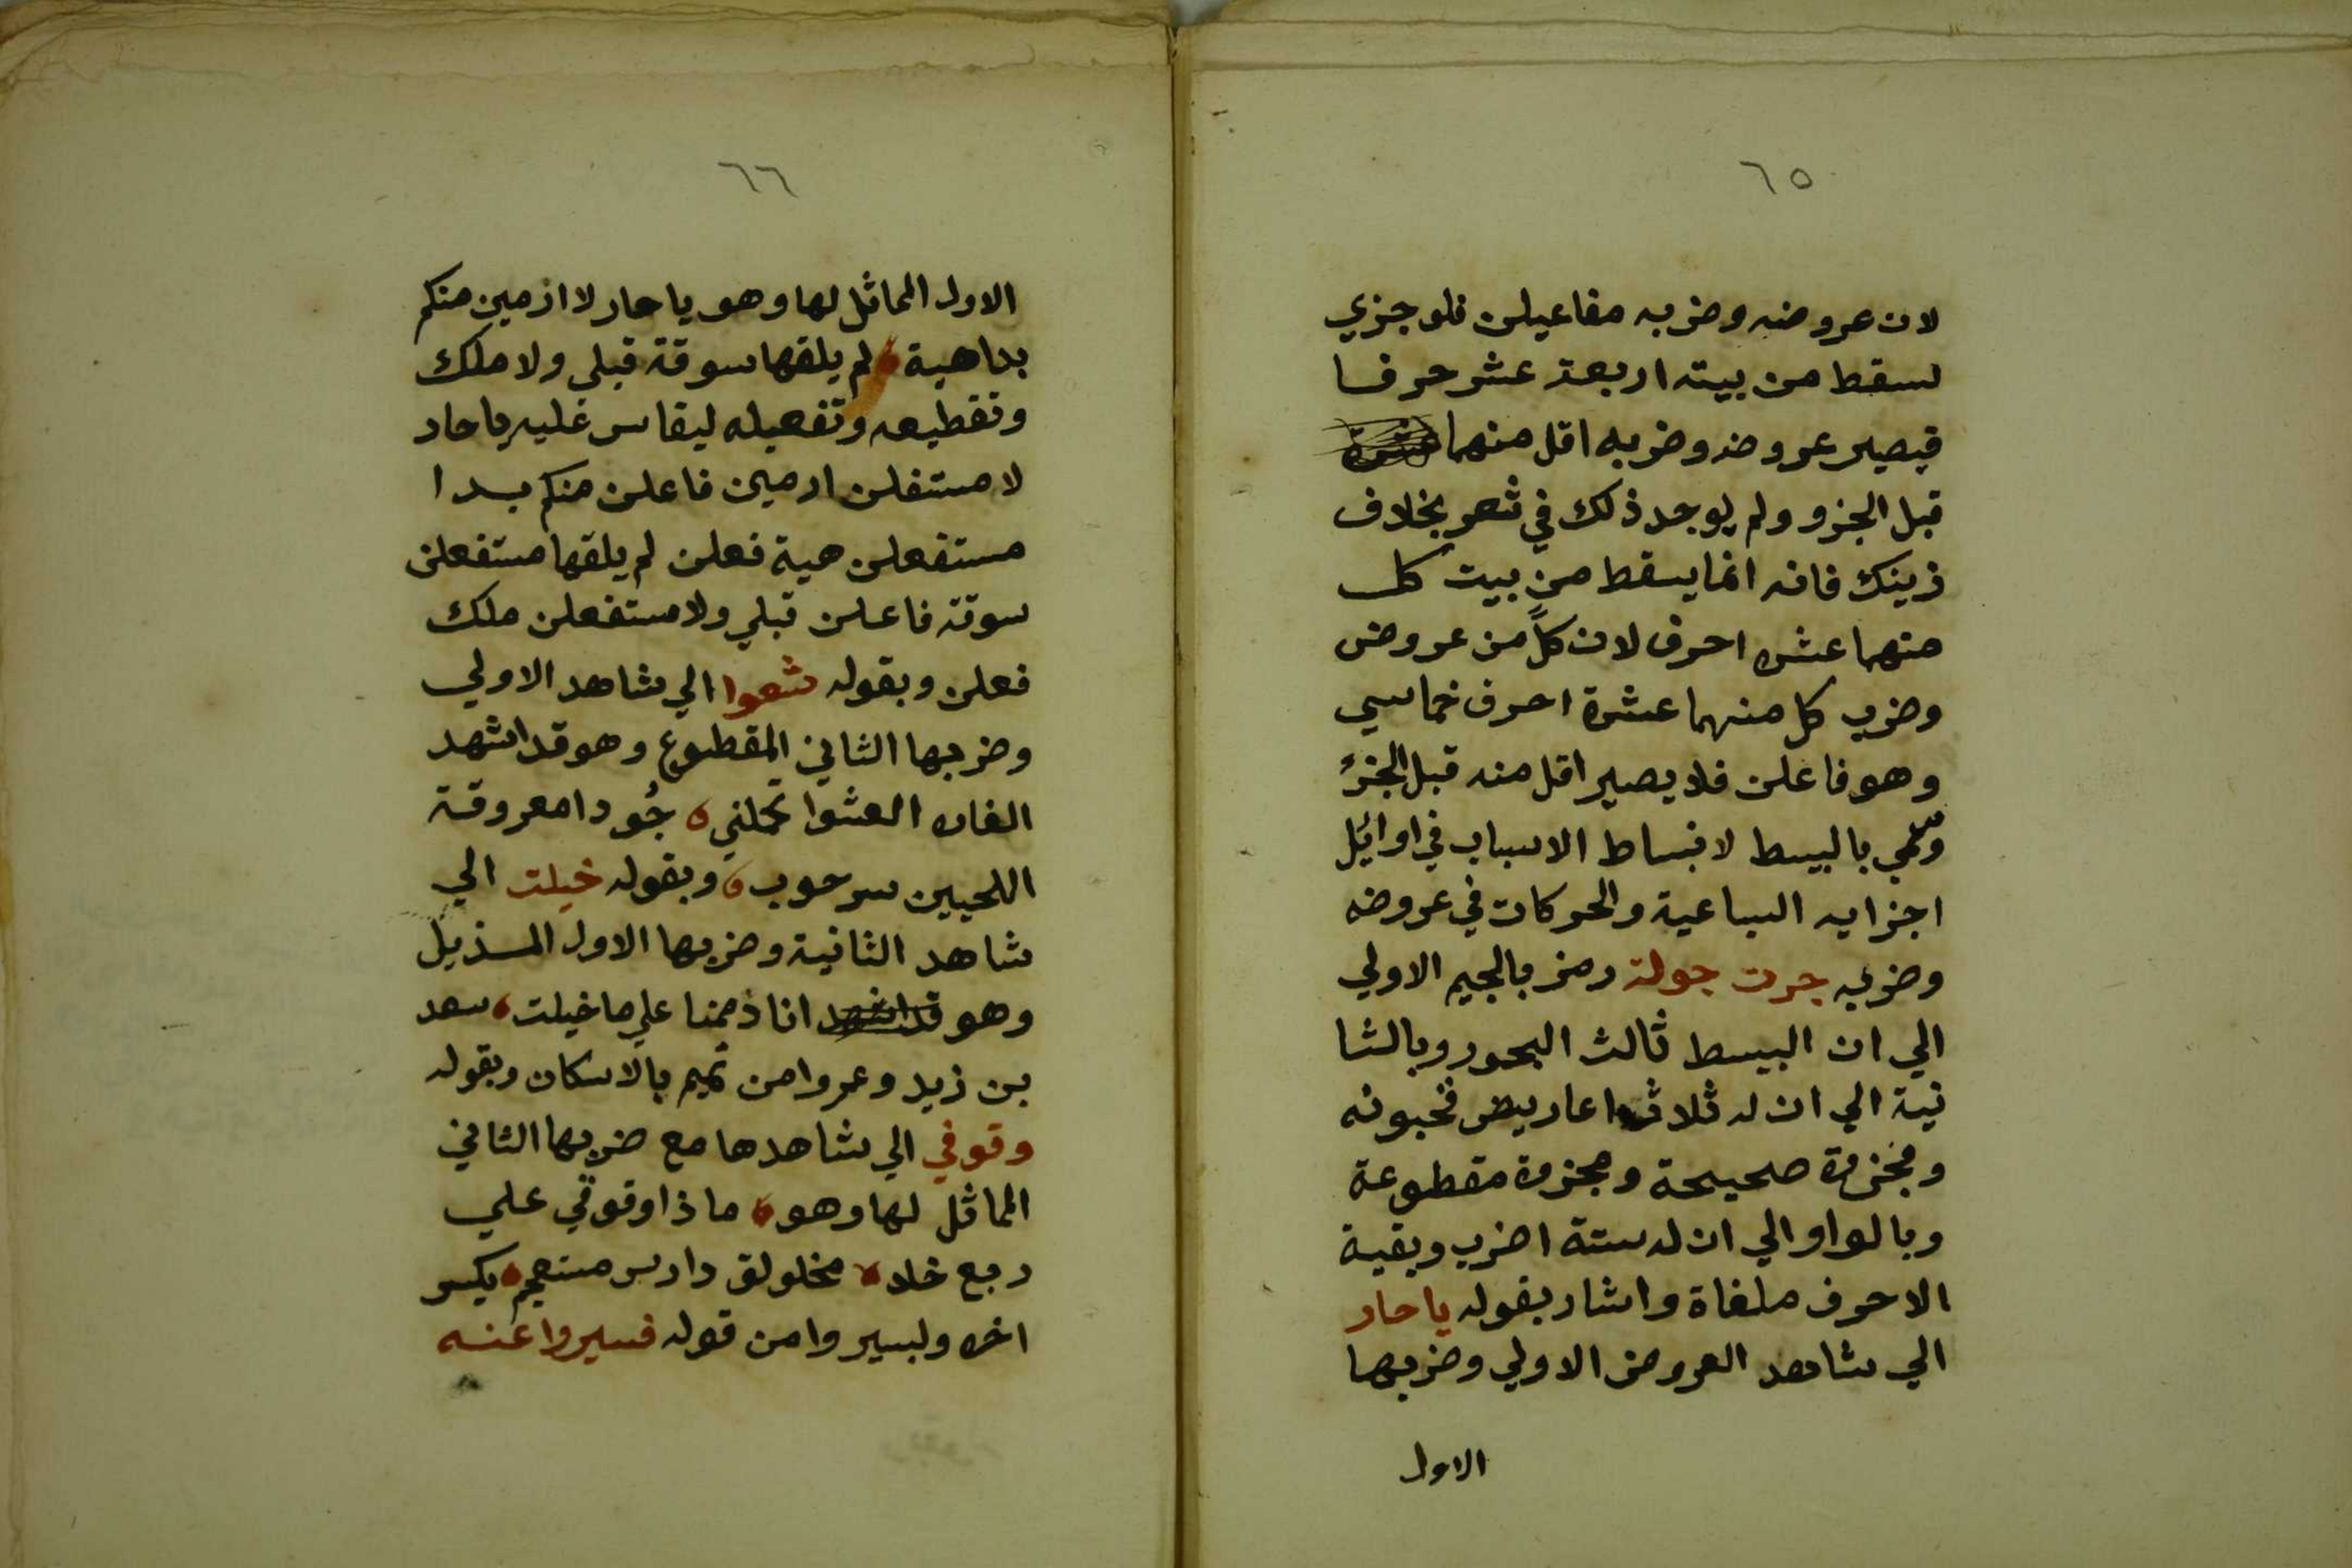 ٦٥
لان عروضه وضربه مفاعيلن فلو جزي
لسقط من بيته اربعة عشر حرفا
فيصير عروضه وضربه اقل منهما
قبل الجزو ولم يوجد ذلك في شعر بخلاف
ذينك فانه انما يسقط من بيت كل
منهما عشره احرف لان كلاً من عروض
وضرب كل منهما عشرة احرف خماسي
وهو فاعلن فلا يصير اقل منه قبل الجزءِ
وسُمي بالبسيط لانبساط الاسباب في اوائل
اجزايه السباعية والحركات في عروضه
وضربه جرت جولة رمز بالجيم الاولي
الي ان البسيط ثالث البحور وبالثا
نية الي ان له ثلاث اعاريض مخبونه
ومجزوة صحيحة ومجزوة مقطوعة
وبالواو الي ان له ستة اضرب وبقية
الاحرف ملغاة واشار بقوله يا حار
الي شاهد العروض الاولي وضربها
الاول
٦٦
الاول المماثل لها وهو يا حار لا ارمين منكم
بداهية لم يلقها سوقة قبلي ولا ملك
وتقطيعه وتفعيله ليقاس عليه يا حار
لا مستفلن ارمين فاعلن منكم بدا
مستفعلن هية فعلن لم يلقها مستفعلن
سوقة فاعلن قبلي ولا مستفعلن ملك
فعلن وبقوله شعوا الي شاهد الاولي
وضربها الثاني المقطوع وهو قد اشهد
الغاره الشعوا تحملني جُردا معروقة
اللحيين سرحوب وبقوله خيلت الي
شاهد الثانية وضربها الاول المذيل
وهو قد اشهد انا ذممنا علي ما خيلت سعد
بن زيد وعمروا من تميم بالاسكان وبقوله
وقوفي الي شاهدها مع ضربها الثاني
المماثل لها وهو ماذا وقوفي علي
ربع خلا مخلولق دارس مستعجم بكسر
اخره ولبسيروا من قوله فسيروا عنه